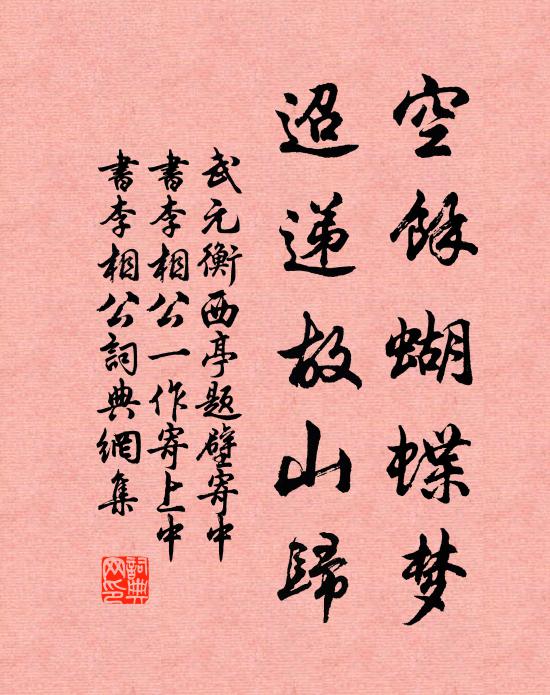 空餘蝴蝶梦
迢递故山歸
武元衡西亭题壁寄中
書李相公一作寄上中
書李相公詞典網集
詞典网印